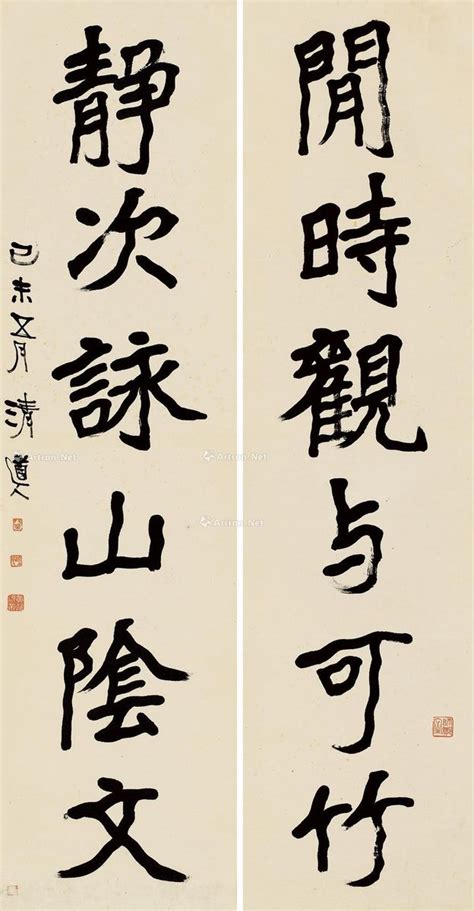 閒時觀与可竹
靜次詠山陰文
己未五月 清道人
Artron.Net
Artron.Net